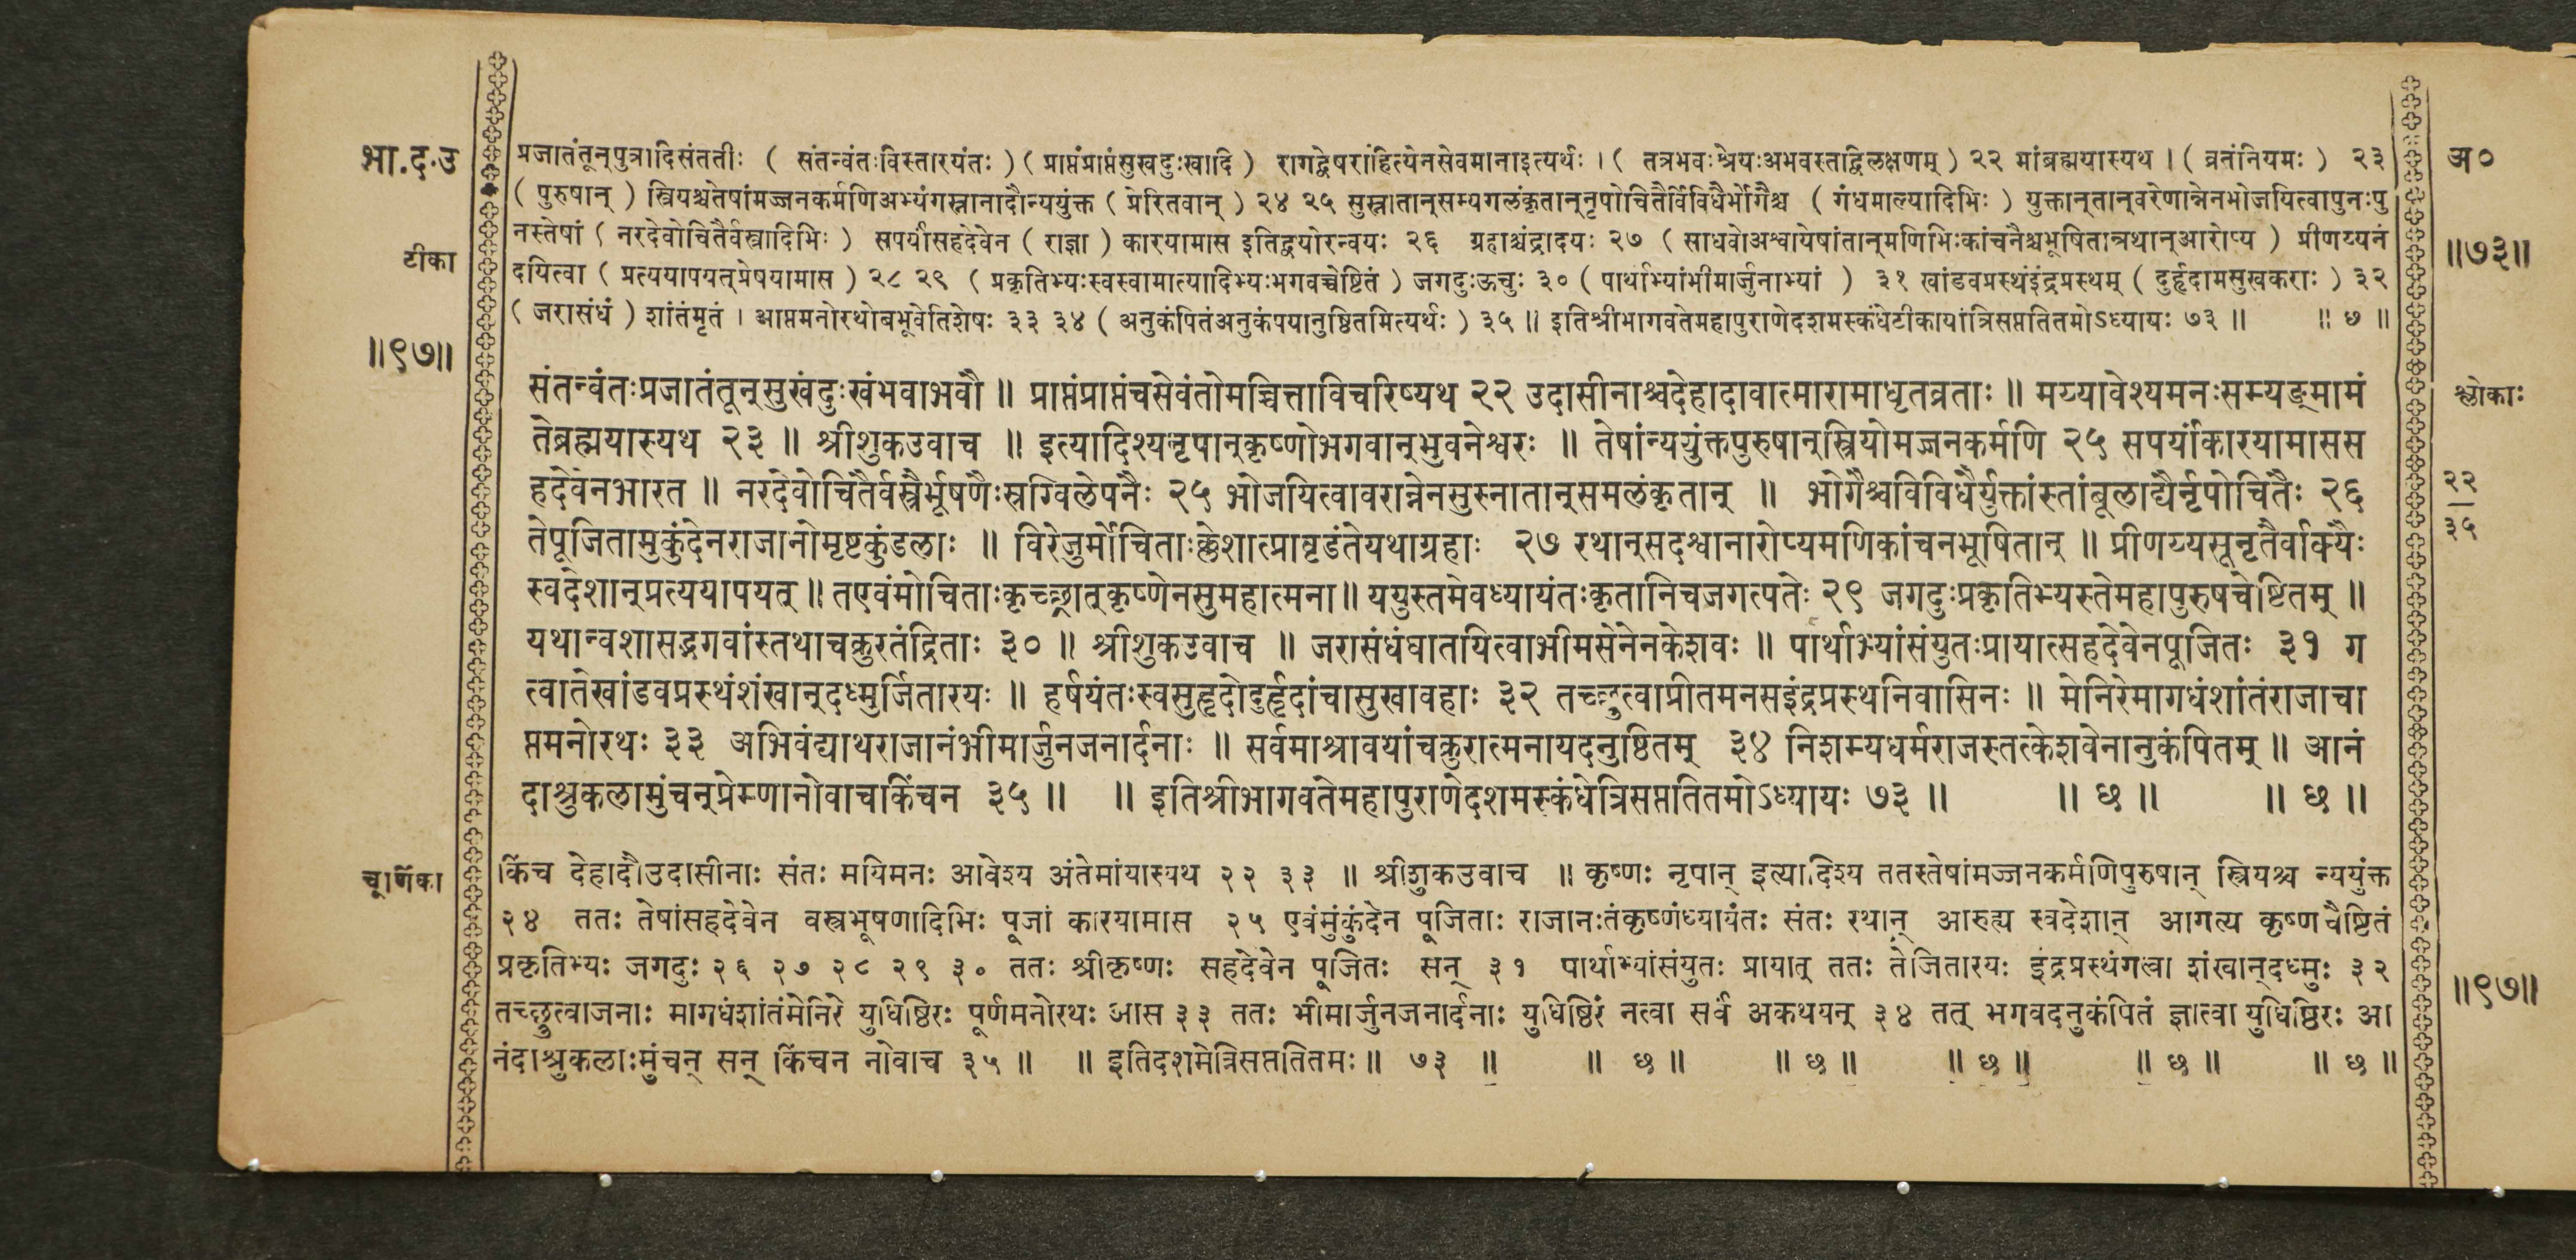 भा.द.उ
टीका
॥९७॥
प्रजातंतून्पुत्रादिसंततीः ( संतन्वंतःविस्तारयंतः ) ( प्राप्तंप्राप्तंसुखदुःखादि ) रागद्वेषराहित्येनसेवमानाइत्यर्थः । ( तत्रभवःश्रेयःअभवस्तद्विलक्षणम् ) २२ मांब्रह्मयास्यथ । ( व्रतंनियमः ) २३
( पुरुषान् ) स्त्रियश्चतेषांमज्जनकर्मणिअभ्यंगस्नानादौन्ययुंक्त ( प्रेरितवान् ) २४ २५ सुस्नातान्सम्यगलंकृतान्नृपोचितैर्विविधैर्भोगैश्च ( गंधमाल्यादिभिः ) युक्तान्तान्वरेणान्नेनभोजयित्वापुनःपु
नस्तेषां ( नरदेवोचितैर्वस्त्रादिभिः ) सपर्यांसहदेवेन ( राज्ञा ) कारयामास इतिद्वयोरन्वयः २६ ग्रहाश्चंद्रादयः २७ ( साधवोअश्वायेषांतान्मणिभिःकांचनैश्चभूषितान्रथान्आरोप्य ) प्रीणय्यनं
दयित्वा ( प्रत्ययापयत्प्रेषयामास ) २८ २९ ( प्रकृतिभ्यःस्वस्वामात्यादिभ्यःभगवच्चेष्टितं ) जगदुःऊचुः ३० ( पार्थाभ्यांभीमार्जुनाभ्यां ) ३१ खांडवप्रस्थंइंद्रप्रस्थम् ( दुर्हृदामसुखकराः ) ३२
( जरासंधं ) शांतंमृतं । आप्तमनोरथोबभूवेतिशेषः ३३ ३४ ( अनुकंपितंअनुकंपयानुष्ठितमित्यर्थः ) ३५ ॥ इतिश्रीभागवतेमहापुराणेदशमस्कंधेटीकायांत्रिसप्ततितमोऽध्यायः ७३ ॥ ॥ छ ॥
संतन्वंतःप्रजातंतून्सुखंदुःखंभवाभवौ ॥ प्राप्तंप्राप्तंचसेवंतोमच्चित्ताविचरिष्यथ २२ उदासीनाश्चदेहादावात्मारामाधृतव्रताः ॥ मय्यावेश्यमनःसम्यङ्मामं
तेब्रह्मयास्यथ २३ ॥ श्रीशुकउवाच ॥ इत्यादिश्यनृपान्कृष्णोभगवान्भुवनेश्वरः ॥ तेषांन्ययुंक्तपुरुषान्स्त्रियोमज्जनकर्मणि २५ सपर्यांकारयामासस
हदेवेनभारत ॥ नरदेवोचितैर्वस्त्रैर्भूषणैःस्रग्विलेपनैः २५ भोजयित्वावरान्नेनसुस्नातान्समलंकृतान् ॥ भोगैश्चविविधैर्युक्तांस्तांबूलाद्यैर्नृपोचितैः २६
तेपूजितामुकुंदेनराजानोमृष्टकुंडलाः ॥ विरेजुर्मोचिताःक्लेशात्प्रावृडंतेयथाग्रहाः २७ रथान्सदश्वानारोप्यमणिकांचनभूषितान् ॥ प्रीणय्यसूनृतैर्वाक्यैः
स्वदेशान्प्रत्ययापयत् ॥ तएवंमोचिताःकृच्छ्रात्कृष्णेनसुमहात्मना ॥ ययुस्तमेवध्यायंतःकृतानिचजगत्पतेः २९ जगदुःप्रकृतिभ्यस्तेमहापुरुषचेष्टितम् ॥
यथान्वशासद्भगवांस्तथाचक्रुरतंद्रिताः ३० ॥ श्रीशुकउवाच ॥ जरासंधंघातयित्वाभीमसेनेनकेशवः ॥ पार्थाभ्यांसंयुतःप्रायात्सहदेवेनपूजितः ३१ ग
त्वातेखांडवप्रस्थंशंखान्दध्मुर्जितारयः ॥ हर्षयंतःस्वसुहृदोदुर्हृदांचासुखावहाः ३२ तच्छ्रुत्वाप्रीतमनसइंद्रप्रस्थनिवासिनः ॥ मेनिरेमागधंशांतंराजाचा
प्तमनोरथः ३३ अभिवंद्याथराजानंभीमार्जुनजनार्दनाः ॥ सर्वमाश्रावयांचक्रुरात्मनायदनुष्ठितम् ३४ निशम्यधर्मराजस्तत्केशवेनानुकंपितम् ॥ आनं
दाश्रुकलामुंचन्प्रेम्णानोवाचकिंचन ३५ ॥ ॥ इतिश्रीभागवतेमहापुराणेदशमस्कंधेत्रिसप्ततितमोऽध्यायः ७३ ॥ ॥ छ ॥ ॥ छ ॥
चूर्णिका
किंच देहादौउदासीनाः संतः मयिमनः आवेश्य अंतेमांयास्यथ २२ ३३ ॥ श्रीशुकउवाच ॥ कृष्णः नृपान् इत्यादिश्य ततस्तेषांमज्जनकर्मणिपुरुषान् स्त्रियश्च न्ययुंक्त
२४ ततः तेषांसहदेवेन वस्त्रभूषणादिभिः पूजां कारयामास २५ एवंमुंकुंदेन पूजिताः राजानःतंकृष्णंध्यायंतः संतः रथान् आरुह्य स्वदेशान् आगत्य कृष्णचेष्टितं
प्रकृतिभ्यः जगदुः २६ २७ २८ २९ ३० ततः श्रीकृष्णः सहदेवेन पूजितः सन् ३१ पार्थाभ्यांसंयुतः प्रायात् ततः तेजितारयः इंद्रप्रस्थंगत्वा शंखान्दध्मुः ३२
तच्छ्रुत्वाजनाः मागधंशांतंमेनिरे युधिष्ठिरः पूर्णमनोरथः आस ३३ ततः भीमार्जुनजनार्दनाः युधिष्ठिरं नत्वा सर्वं अकथयन् ३४ तत् भगवदनुकंपितं ज्ञात्वा युधिष्ठिरः आ
नंदाश्रुकलाःमुंचन् सन् किंचन नोवाच ३५ ॥ ॥ इतिदशमेत्रिसप्ततितमः ॥ ७३ ॥ ॥ छ ॥ ॥ छ ॥ ॥ छ ॥ ॥ छ ॥ ॥ छ ॥
अ०
॥७३॥
श्लोकाः
२२
३५
॥९७॥